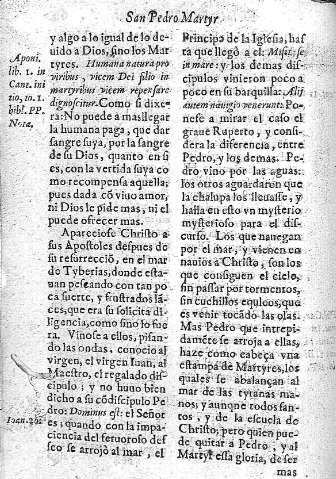 San Pedro Martyr
y algo a lo igual de lo de-
uido a Dios, sino los Mar-
tyres. Humana natura pro
viribus, vicem Dei filio in
martyribus vicem repensare
dignoscitur. Como si dixe-
ra: No puede a mas llegar
la humana paga, que dar
sangre suya, por la sangre
de su Dios, quanto en si
es, con la vertida suya co
mo recompensa aquella;
pues dada cõ viuo amor,
ni Dios le pide mas, ni el
puede ofrecer mas.
Apareciose Christo a
sus Apostoles despues de
su resurrecciõ, en el mar
de Tyberias, donde esta-
uan pescando con tan po
ca suerte, y frustrados lã-
ces, que era su solicita di
ligencia, como sino lo fue
ra. Vinose a ellos, pisan-
do las ondas, conocio al
virgen, el virgen Iuan, al
Maestro, el regalado dis-
cipulo; y no huuo bien
dicho a su cõdiscipulo Pe
dro: Dominus est: el Señor
es; quando con la impa-
ciencia del feruoroso des
seo se arrojò al mar, el
Aponi.
lib. 1. in
Cant. ini
tio, in. 1.
bibl. PP.
Nota,
Ioan. 20.
Principe de la Iglesia, has
ta que llegò a el: Misit se
in mare: y los demas dis-
cipulos vinieron poco a
poco en su barquilla: Alij
autem nauigio venerunt. Po
nese a mirar el caso el
graue Ruperto, y consi-
dera la diferencia, entre
Pedro, y los demas. Pe-
dro vino por las aguas:
los otros aguardaron que
la chalupa los lleuasse, y
halla en esto vn mysterio
mysterioso para el dis-
curso. Los que nauegan
por el mar, y vienen en
nauios a Christo, son los
que consiguen el cielo,
sin passar por tormentos,
sin cuchillos equleos, que
es venir tocãdo las olas.
Mas Pedro que intrepi-
damẽte se arroja a ellas,
haze como cabeça vna
estampa de Martyres, los
quales se abalançan al
mar de las tyranas ma-
nos, y aunque todos san-
tos, y de la escuela de
Christo, pero quien pue-
de quitar a Pedro, y al
Martyr essa gloria, de ser
mas